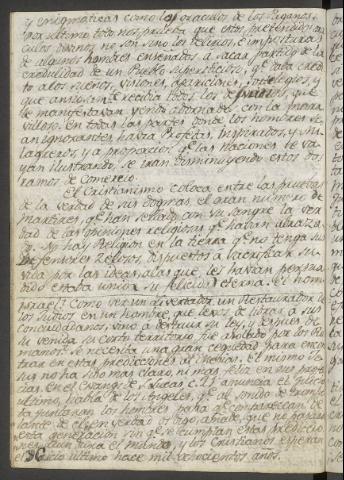 y enigmaticas como los oraculos de los Paganos.
por ultimo todo nos prueba que estos pretendidos ora
culos divinos no son sino los delirios, é imposturas
de algunos hombres enseñados á sacar partido de la
credulidad de un Pueblo supersticioso, qe daba credi
to á los sueños, visiones, apariciones, sortilegios, y
que ansiosamente recibia todos los delirios, que
se manifestavan venida adornada con lo mara
villoso. En todas las partes donde los hombres se
an ignorantes havra Profetas, Inspirados, y Mi
lagreros, y á proporcion qe las naciones se va
yan ilustrando se iran disminuyendo estos dos
ramos de Comercio.
El Cristianismo coloca entre las pruebas
de la verdad de sus dogmas, el gran numero de
Martires, qe han sellado con su sangre la ver
dad de las opiniones religiosas qe habian abraza
do. No hay Religion en la tierra qe no tenga sus
Defensores zelosos, dispuestos á sacrificar su
vida por las ideas, alas que les havian persua
dido estaba unida su felicidad eterna. El hom
Israel? Como ver un Libertador, un Restaurador de
los Judios en un hombre, que lexos de librar á sus
concuidadanos, vino á destruir su ley, y despues de
su venida su corto territorio fue asolado por los Ro
manos? Se necesita una gran ceguedad para encon
trar en estas predicciones al Mesias. El mismo Je
sus no ha sido mas claro, ni mas feliz en sus profe
cias. En el evang. de S. Lucas c. 21 anuncia el Juicio
ultimo, habla de los Angeles, qe al sonido de trompe
ta juntaran los hombres para qe comparezcan de
lante de el: en verdad os digo, añade, que no pasará
esta generacion sin qe se cumplan estas prediccio
el mundo, y los Cristianos esperan
36 el Juicio ultimo hace mil ochocientos años.